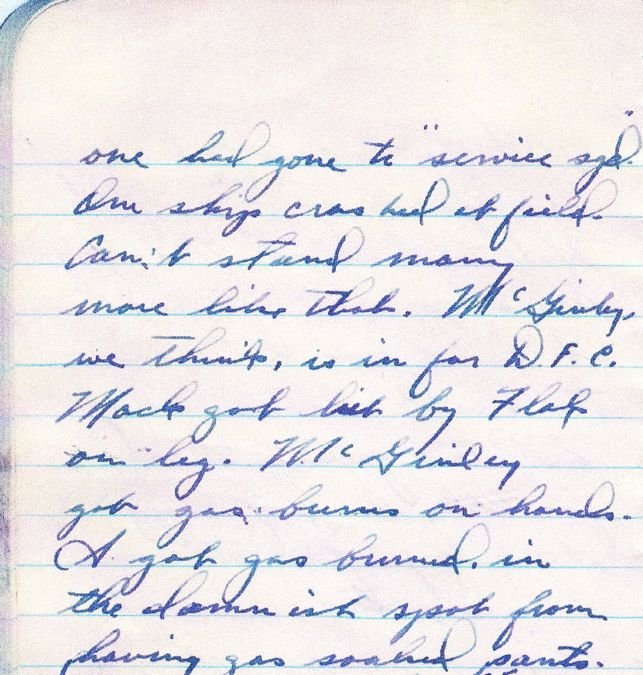 one had gone to "service sqd."
One ship crashed at field.
Can't stand many
more like that. McGinley,
we think, is in for D.F.C.
Mack got hit by Flak
on leg. McGinley
got gas burns on hands.
I got gas burned in
the damnist spot from
having gas soaked pants.